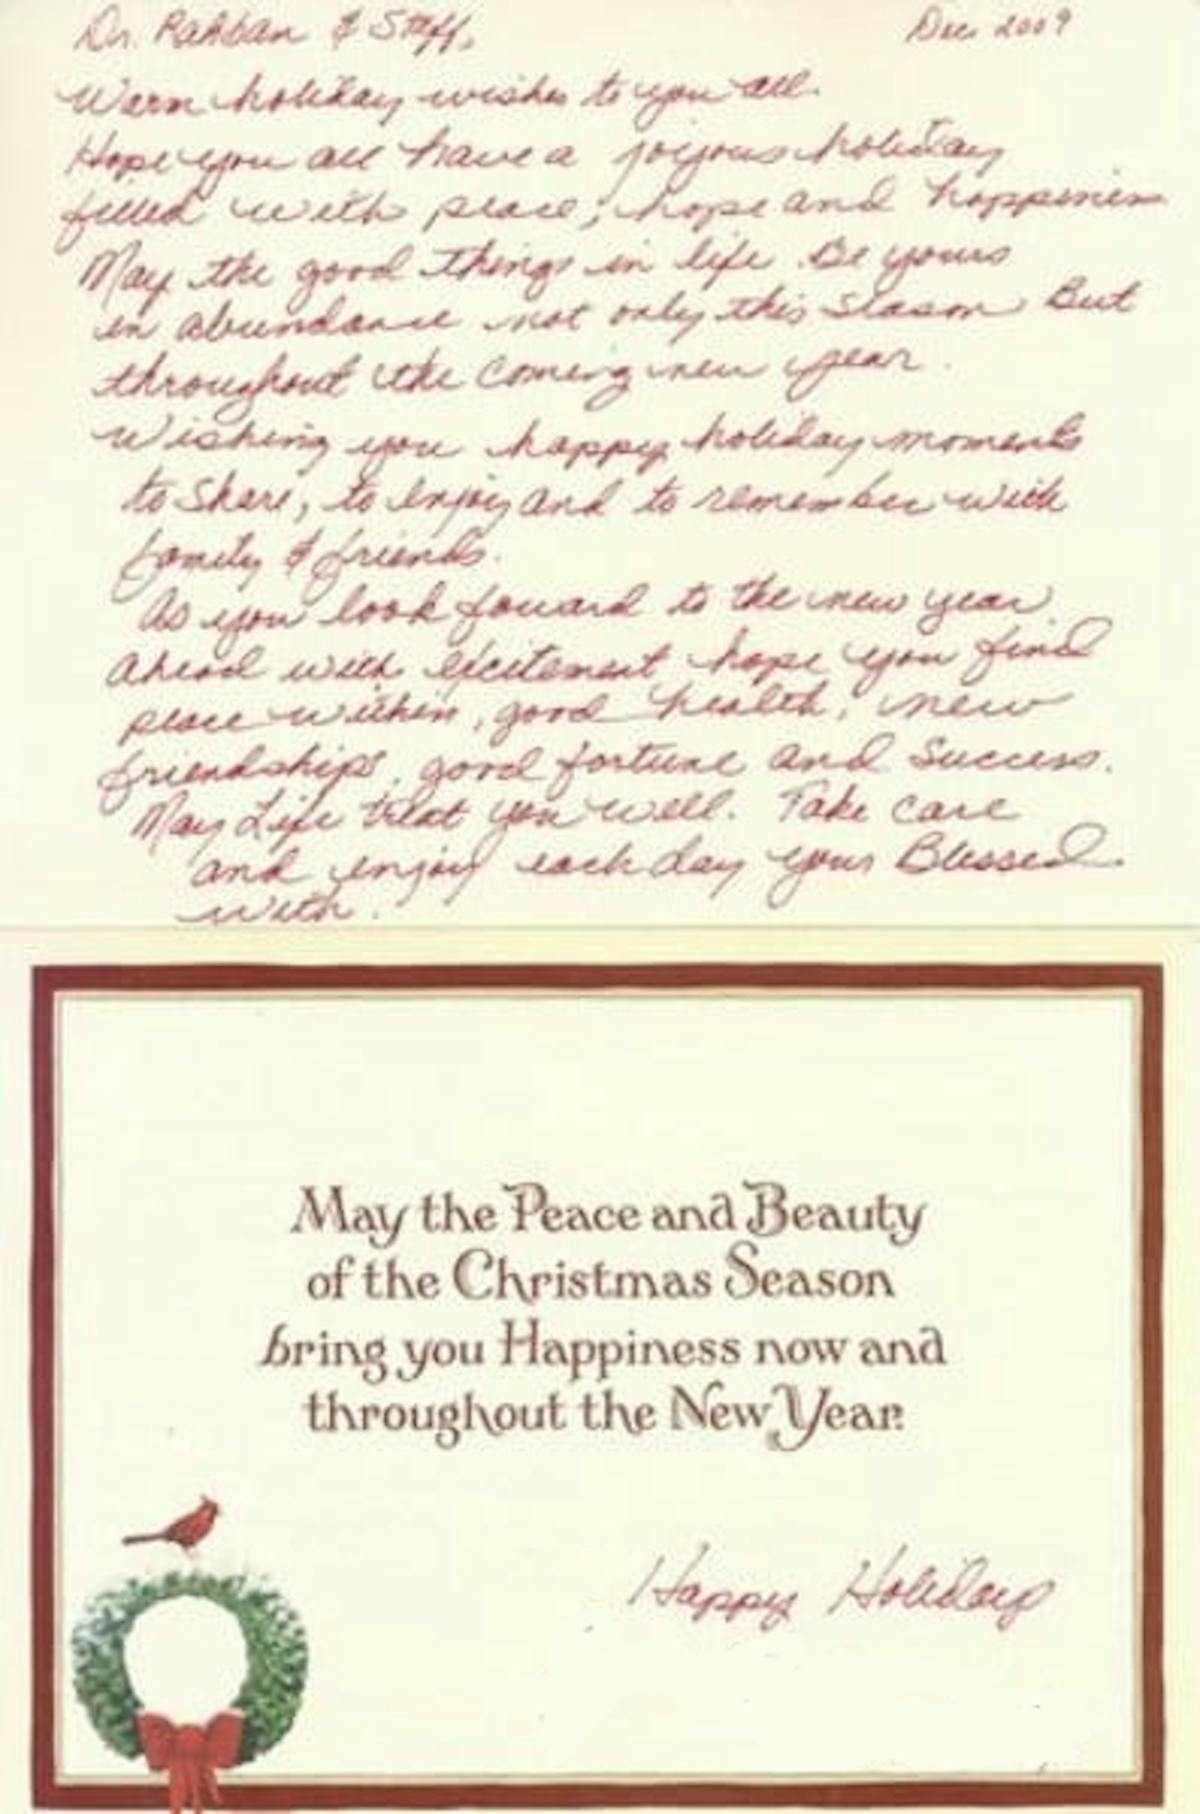 Dr. Rahban & Staff, Dec 2009
Warm holiday wishes to you all.
Hope you all have a joyous holiday
filled with peace, hope and happiness
May the good things in life Be yours
in abundance not only this season But
throughout the coming new year.
Wishing you happy holiday moments
to share, to enjoy and to remember with
family & friends.
As you look foward to the new year
Ahead with excitement hope you find
peace within, good health, new
friendships, good fortune and success.
May Life treat you well. Take care
and enjoy each day your Blessed
with.
May the Peace and Beauty
of the Christmas Season
bring you Happiness now and
throughout the New Year.
Happy Holidays